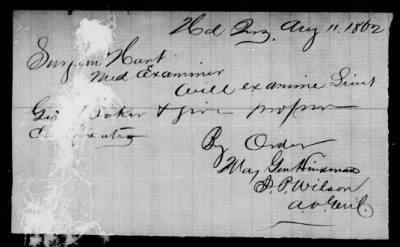 Hd Qrs, Aug 11, 1862
Surgeon Hart
Med Examiner
will examine Lieut
Baker & give proper
Certificate
By Order
Maj Gen Hindman
P. Wilson